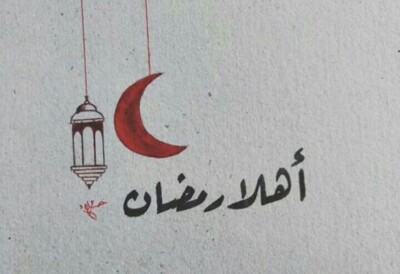 أهلا رمضان